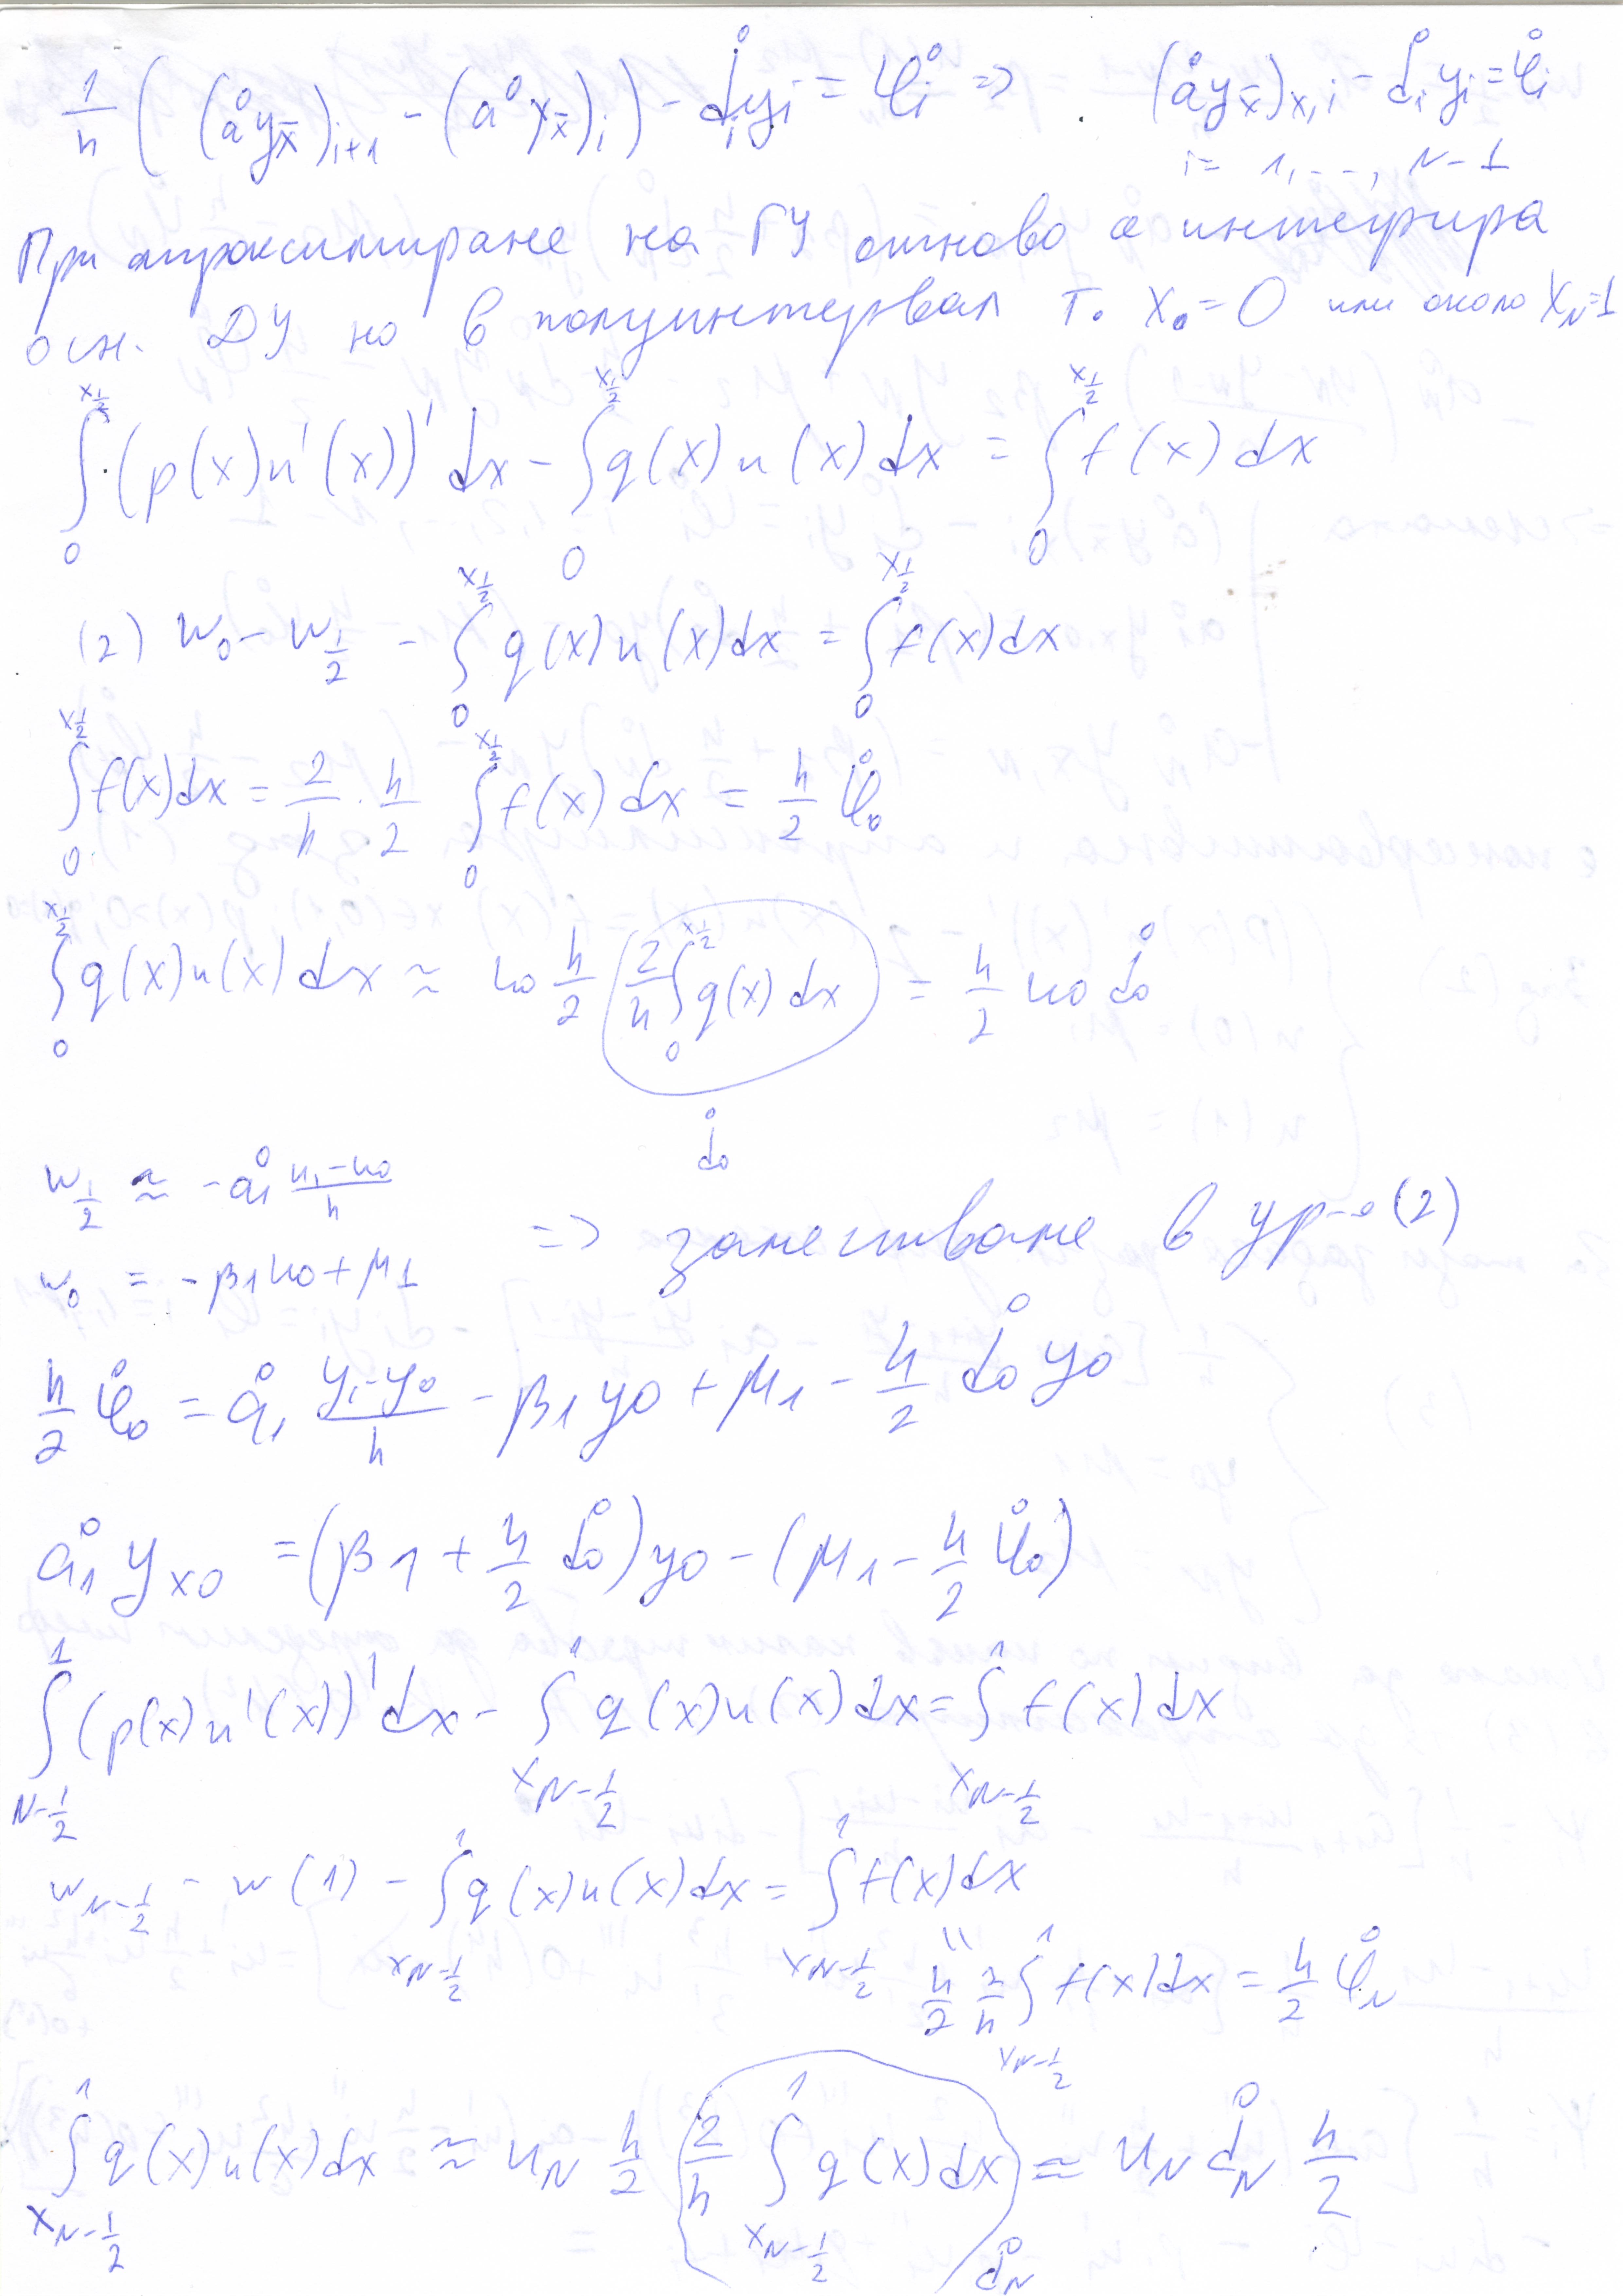 1/h ( (å y_x̄)_{i+1} - (å y_x̄)_i ) - d̊_i y_i = φ̊_i => (å y_x̄)_{x,i} - d̊_i y_i = φ̊_i
i = 1, ..., N-1
При апроксимиране на ГУ отново се интегрира
осн. ДУ но в полуинтервал т. x_0 = 0 или около x_N = 1
∫_0^{x_{1/2}} (p(x)u'(x))' dx - ∫_0^{x_{1/2}} q(x)u(x)dx = ∫_0^{x_{1/2}} f(x)dx
(2) w_0 - w_{1/2} - ∫_0^{x_{1/2}} q(x)u(x)dx = ∫_0^{x_{1/2}} f(x)dx
∫_0^{x_{1/2}} f(x)dx = 2/h · h/2 ∫_0^{x_{1/2}} f(x)dx = h/2 φ̊_0
∫_0^{x_{1/2}} q(x)u(x)dx ≈ u_0 h/2 (2/h ∫_0^{x_{1/2}} q(x)dx) = h/2 u_0 d̊_0
d̊_0
w_{1/2} ≈ -å_1 (u_1-u_0)/h
w_0 = -β_1 u_0 + μ_1 => заместваме в ур-е (2)
h/2 φ̊_0 = å_1 (y_1-y_0)/h - β_1 y_0 + μ_1 - h/2 d̊_0 y_0
å_1 y_{x0} = (β_1 + h/2 d̊_0) y_0 - (μ_1 - h/2 φ̊_0)
∫_{N-1/2}^1 (p(x)u'(x))' dx - ∫_{x_{N-1/2}}^1 q(x)u(x)dx = ∫_{x_{N-1/2}}^1 f(x)dx
w_{N-1/2} - w(1) - ∫_{x_{N-1/2}}^1 q(x)u(x)dx = ∫_{x_{N-1/2}}^1 f(x)dx
h/2 2/h ∫_{x_{N-1/2}}^1 f(x)dx = h/2 φ̊_N
∫_{x_{N-1/2}}^1 q(x)u(x)dx ≈ u_N h/2 (2/h ∫_{x_{N-1/2}}^1 q(x)dx) ≈ u_N d̊_N h/2
d̊_N